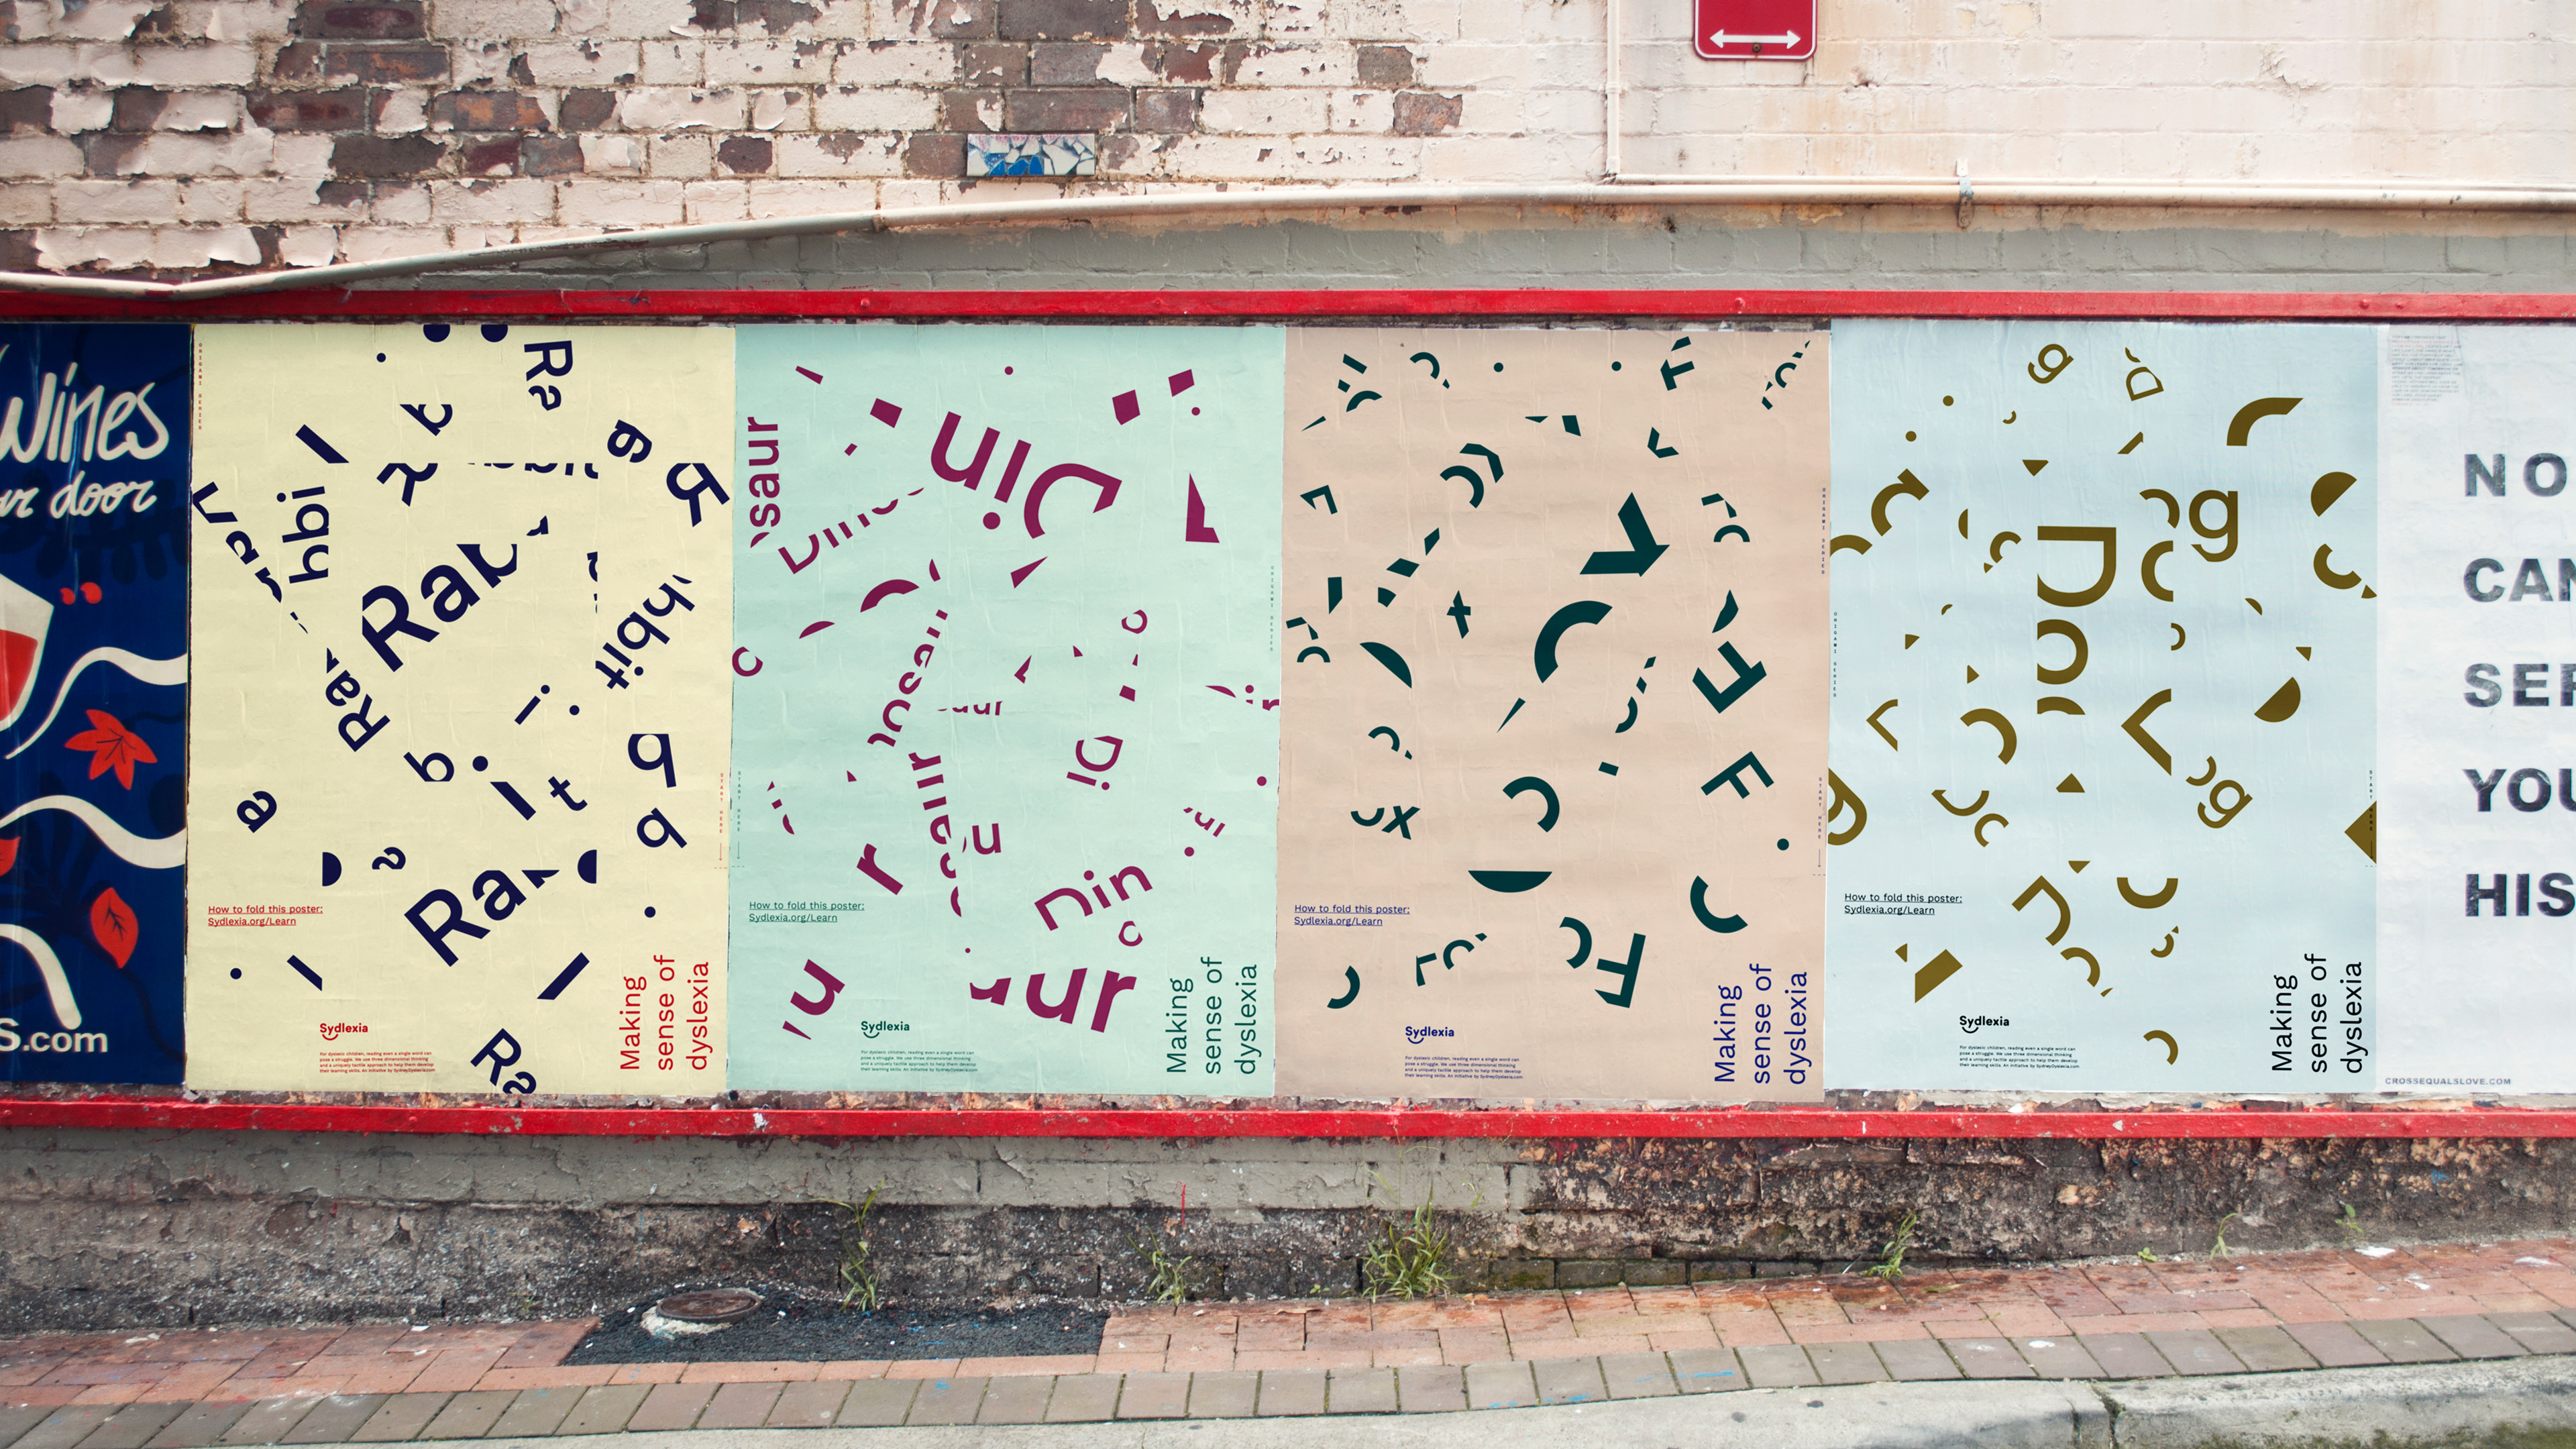 Wines
ur door
S.com
ORIGAMI SERIES
Ra
hbi
Rab
hbit
Ra
b
i
t
a
Ra
START HERE
How to fold this poster:
Sydlexia.org/Learn
Sydlexia
For dyslexic children, reading even a single word can
pose a struggle. We use three dimensional thinking
and a uniquely tactile approach to help them develop
their learning skills. An initiative by SydneyDyslexia.com
Making
sense of
dyslexia
saur
Din
Dino
ORIGAMI SERIES
Di
u
r
Din
ur
START HERE
How to fold this poster:
Sydlexia.org/Learn
Sydlexia
For dyslexic children, reading even a single word can
pose a struggle. We use three dimensional thinking
and a uniquely tactile approach to help them develop
their learning skills. An initiative by SydneyDyslexia.com
Making
sense of
dyslexia
ORIGAMI SERIES
x
F
Fo
START HERE
How to fold this poster:
Sydlexia.org/Learn
Sydlexia
For dyslexic children, reading even a single word can
pose a struggle. We use three dimensional thinking
and a uniquely tactile approach to help them develop
their learning skills. An initiative by SydneyDyslexia.com
Making
sense of
dyslexia
g
D
g
ORIGAMI SERIES
og
START HERE
How to fold this poster:
Sydlexia.org/Learn
Sydlexia
For dyslexic children, reading even a single word can
pose a struggle. We use three dimensional thinking
and a uniquely tactile approach to help them develop
their learning skills. An initiative by SydneyDyslexia.com
Making
sense of
dyslexia
NO
CAN
SER
YOU
HIS
CROSSEQUALSLOVE.COM